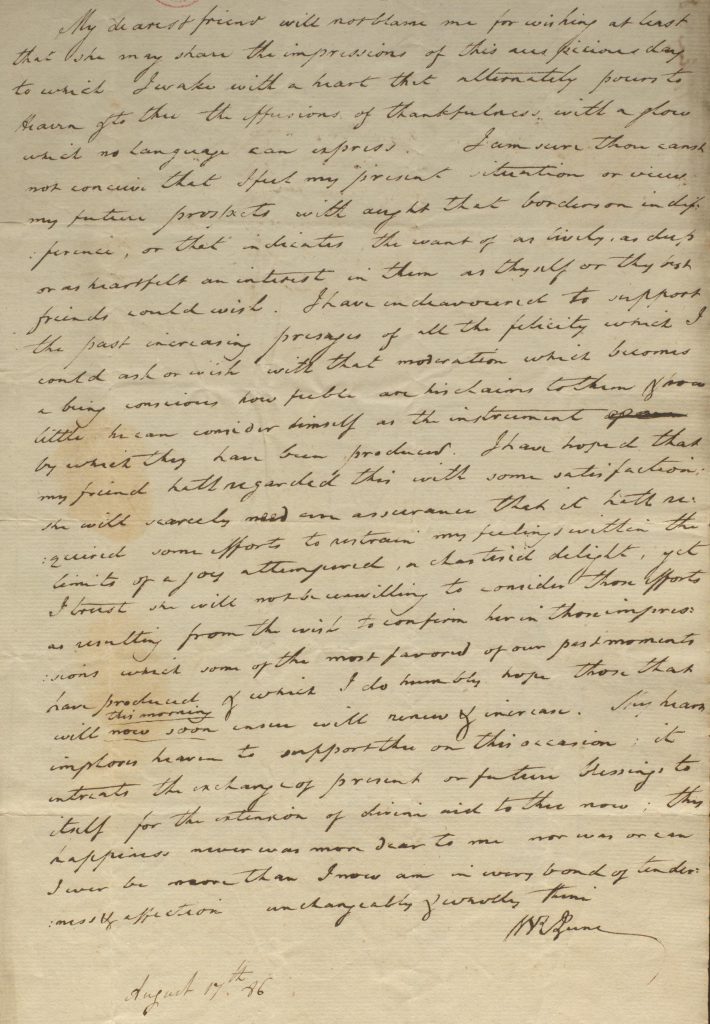 My dearest friend will not blame me for wishing at least
that she may share the impressions of this auspicious day
to which I wake with a heart that alternately pours to
Heaven & to thee the effusions of thankfulness with a glow
which no language can express. I am sure thou canst
not conceive that I feel my present situation or view
my future prospects with aught that borders on indif
:ference, or that indicates the want of as lively, as deep
or as heartfelt an interest in them as thyself or thy best
friends could wish. I have endeavoured to support
the past increasing presages of all the felicity which I
could ask or wish with that moderation which becomes
a being conscious how feeble are his claims to them & how
little he can consider himself as the instrument
by which they have been produced. I have hoped that
my friend hath regarded this with some satisfaction:
she will scarcely need an assurance that it hath re:
:quired some efforts to restrain my feelings within the
limits of a joy attempered, a chastised delight, yet
I trust she will not be unwilling to consider those efforts
as resulting from the wish to confirm her in those impres:
:sions which some of the most favored of our past moments
have produced & which I do humbly hope those that
this morning
will now soon ensue will renew & increase. My heart
implores heaven to support thee on this occasion: it
intreats the exchange of present or future blessings to
itself for the extension of divine aid to thee now; thy
happiness never was more dear to me nor was or can
I ever be more than I now am in every bond of tender:
:ness & affection unchangeably & wholly thine

August 17th. 86